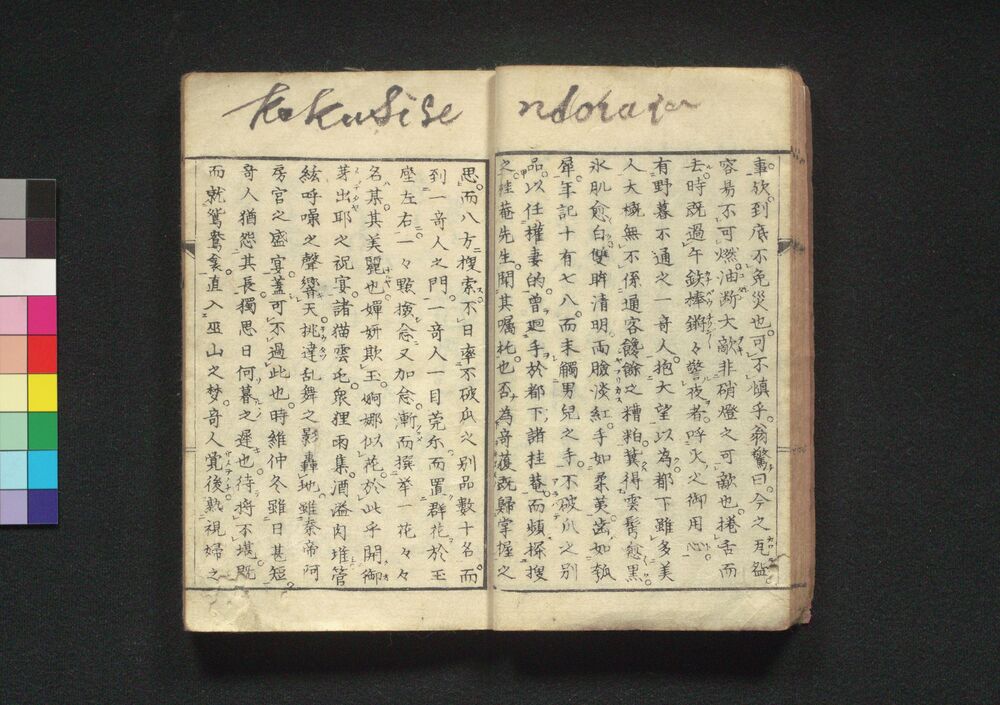 kokusise ndoraia
事欤到底不免災也可不慎乎翁驚曰今之瓦盆
容易不可燃油斯大敵非硝燈之可敵也捲舌而
去時既過午鉄棒鏘々警夜者呼火之御用心
有野暮不通之一奇人抱大望以為都下雖多美
人大概無不係通客饞餘之糟粕冀得雲鬂愈黒
氷肌愈白雙眸清明両臉淡紅手如柔荑歯如瓠
犀年記十有七八而未觸男兒之手不破瓜之別
品以任權妻的曽廻手於都下諸桂菴而頻探搜
之桂菴先生聞其嘱托也否為奇蒦既歸掌握之
思而八方搜索不日率不破瓜之別品數十名而
到一奇人之門一奇人一目莞尓而置群花於玉
座左右一々點撿念又加念漸而撰挙一花々々
名某其美麗也嬋妍欺玉婀娜似花於此乎開御
芽出耶之祝宴諸猫雲屯衆狸雨集酒溢肉堆管
絃呼噪之聲響天挑達乱舞之影轟地雖秦帝阿
房宮之盛宴蓋可不過此也時維仲冬雖日甚短
奇人猶怨其長獨思日何暮之遲也待將不堪既
而就鴛鴦衾直入巫山之梦奇人覚後熟視婦之